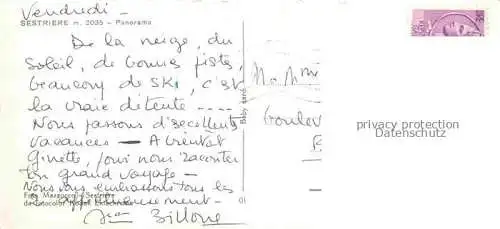 Vendredi -
SESTRIERE m. 2035 - Panorama
De la neige, du
soleil, de bonnes pistes,
beaucoup de ski, c'est
la vraie détente ----
Nous passons d'excellentes
vacances - A bientôt
Ginette, pour nous raconter
ton grand voyage -
Nous vous embrassons tous les
2 affectueusement -
Foto Sestriere
da fotocolor Kodak Ektachrome
privacy protection
Datenschutz